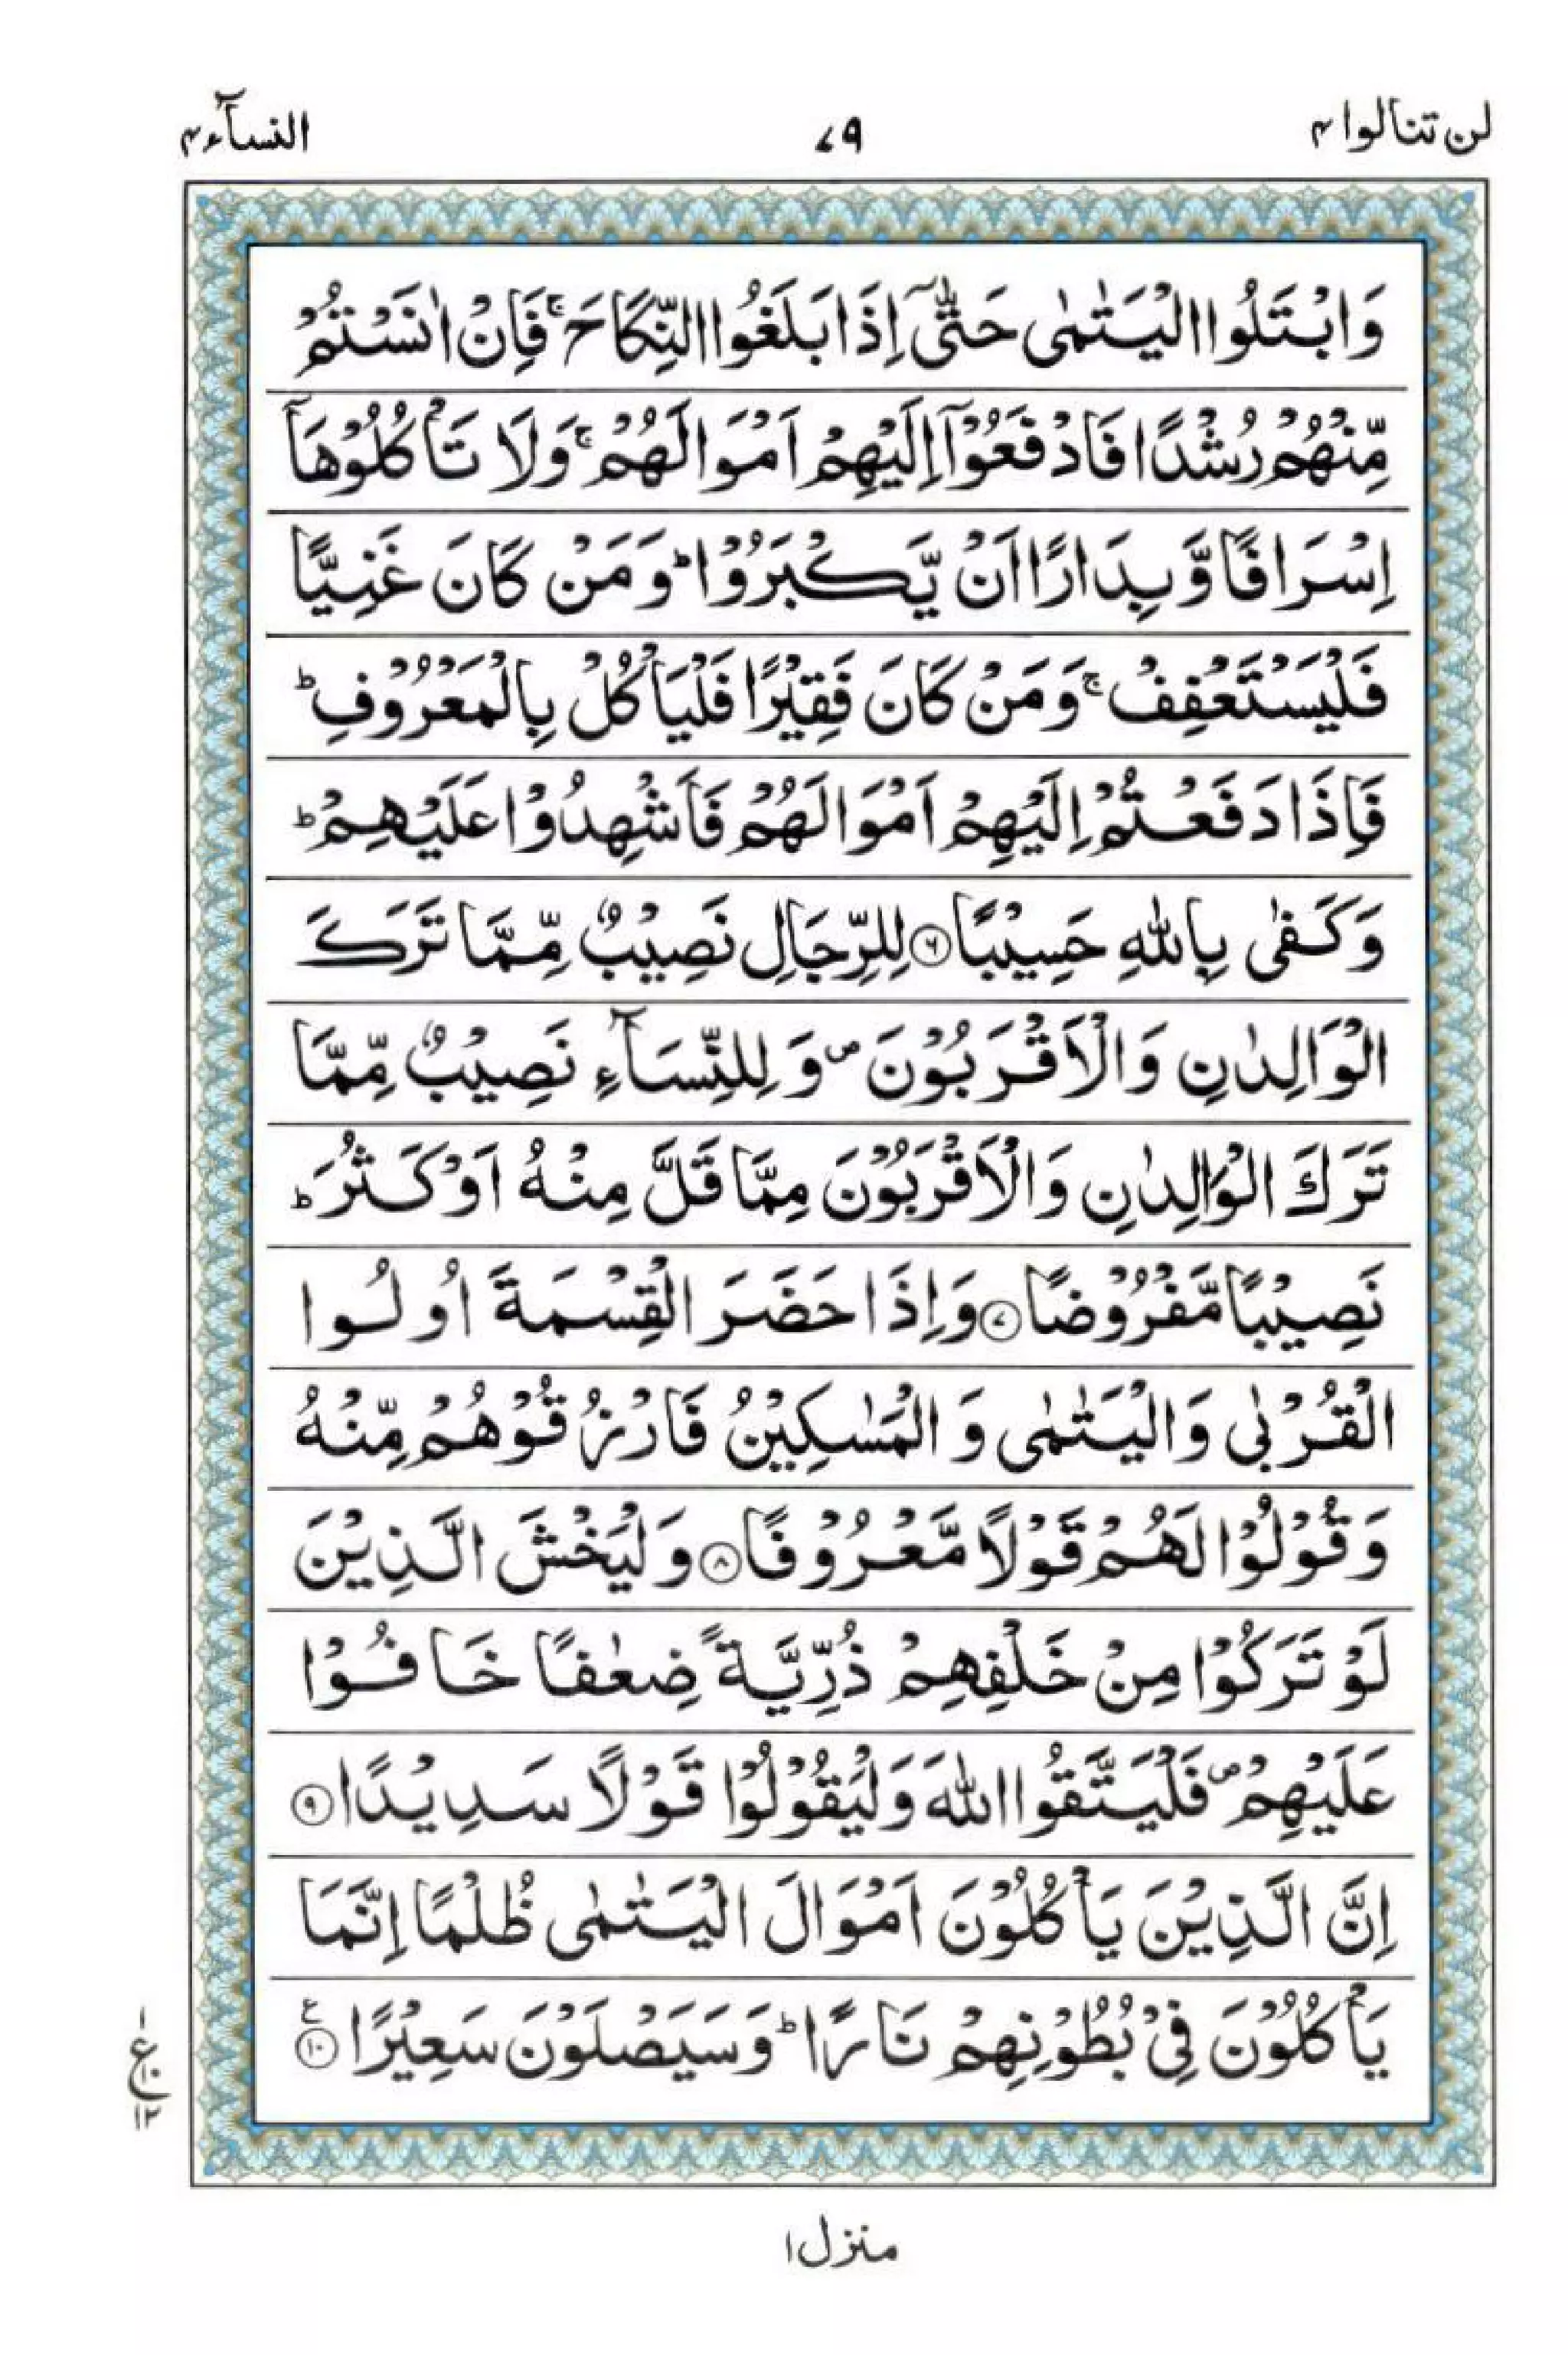 لن تنالوا ۴
۷۹
النسآء ۴
وَابْتَلُوا الْيَتٰمٰى حَتّٰٓى اِذَا بَلَغُوا النِّكَاحَ ۚ فَاِنْ اٰنَسْتُمْ
مِّنْهُمْ رُشْدًا فَادْفَعُوْٓا اِلَيْهِمْ اَمْوَالَهُمْ ۚ وَلَا تَاْكُلُوْهَآ
اِسْرَافًا وَّبِدَارًا اَنْ يَّكْبَرُوْا ؕ وَمَنْ كَانَ غَنِيًّا
فَلْيَسْتَعْفِفْ ۚ وَمَنْ كَانَ فَقِيْرًا فَلْيَاْكُلْ بِالْمَعْرُوْفِ ؕ
فَاِذَا دَفَعْتُمْ اِلَيْهِمْ اَمْوَالَهُمْ فَاَشْهِدُوْا عَلَيْهِمْ ؕ
وَكَفٰى بِاللّٰهِ حَسِيْبًا ۶ لِلرِّجَالِ نَصِيْبٌ مِّمَّا تَرَكَ
الْوَالِدٰنِ وَالْاَقْرَبُوْنَ ۪ وَلِلنِّسَآءِ نَصِيْبٌ مِّمَّا
تَرَكَ الْوَالِدٰنِ وَالْاَقْرَبُوْنَ مِمَّا قَلَّ مِنْهُ اَوْ كَثُرَ ؕ
نَصِيْبًا مَّفْرُوْضًا ۷ وَاِذَا حَضَرَ الْقِسْمَةَ اُولُوا
الْقُرْبٰى وَالْيَتٰمٰى وَالْمَسٰكِيْنُ فَارْزُقُوْهُمْ مِّنْهُ
وَقُوْلُوْا لَهُمْ قَوْلًا مَّعْرُوْفًا ۸ وَلْيَخْشَ الَّذِيْنَ
لَوْ تَرَكُوْا مِنْ خَلْفِهِمْ ذُرِّيَّةً ضِعٰفًا خَافُوْا
عَلَيْهِمْ ۪ فَلْيَتَّقُوا اللّٰهَ وَلْيَقُوْلُوْا قَوْلًا سَدِيْدًا ۹
اِنَّ الَّذِيْنَ يَاْكُلُوْنَ اَمْوَالَ الْيَتٰمٰى ظُلْمًا اِنَّمَا
يَاْكُلُوْنَ فِيْ بُطُوْنِهِمْ نَارًا ؕ وَسَيَصْلَوْنَ سَعِيْرًا ۱۰ ع
۱
ع ۱۰
۱۲
منزل ۱